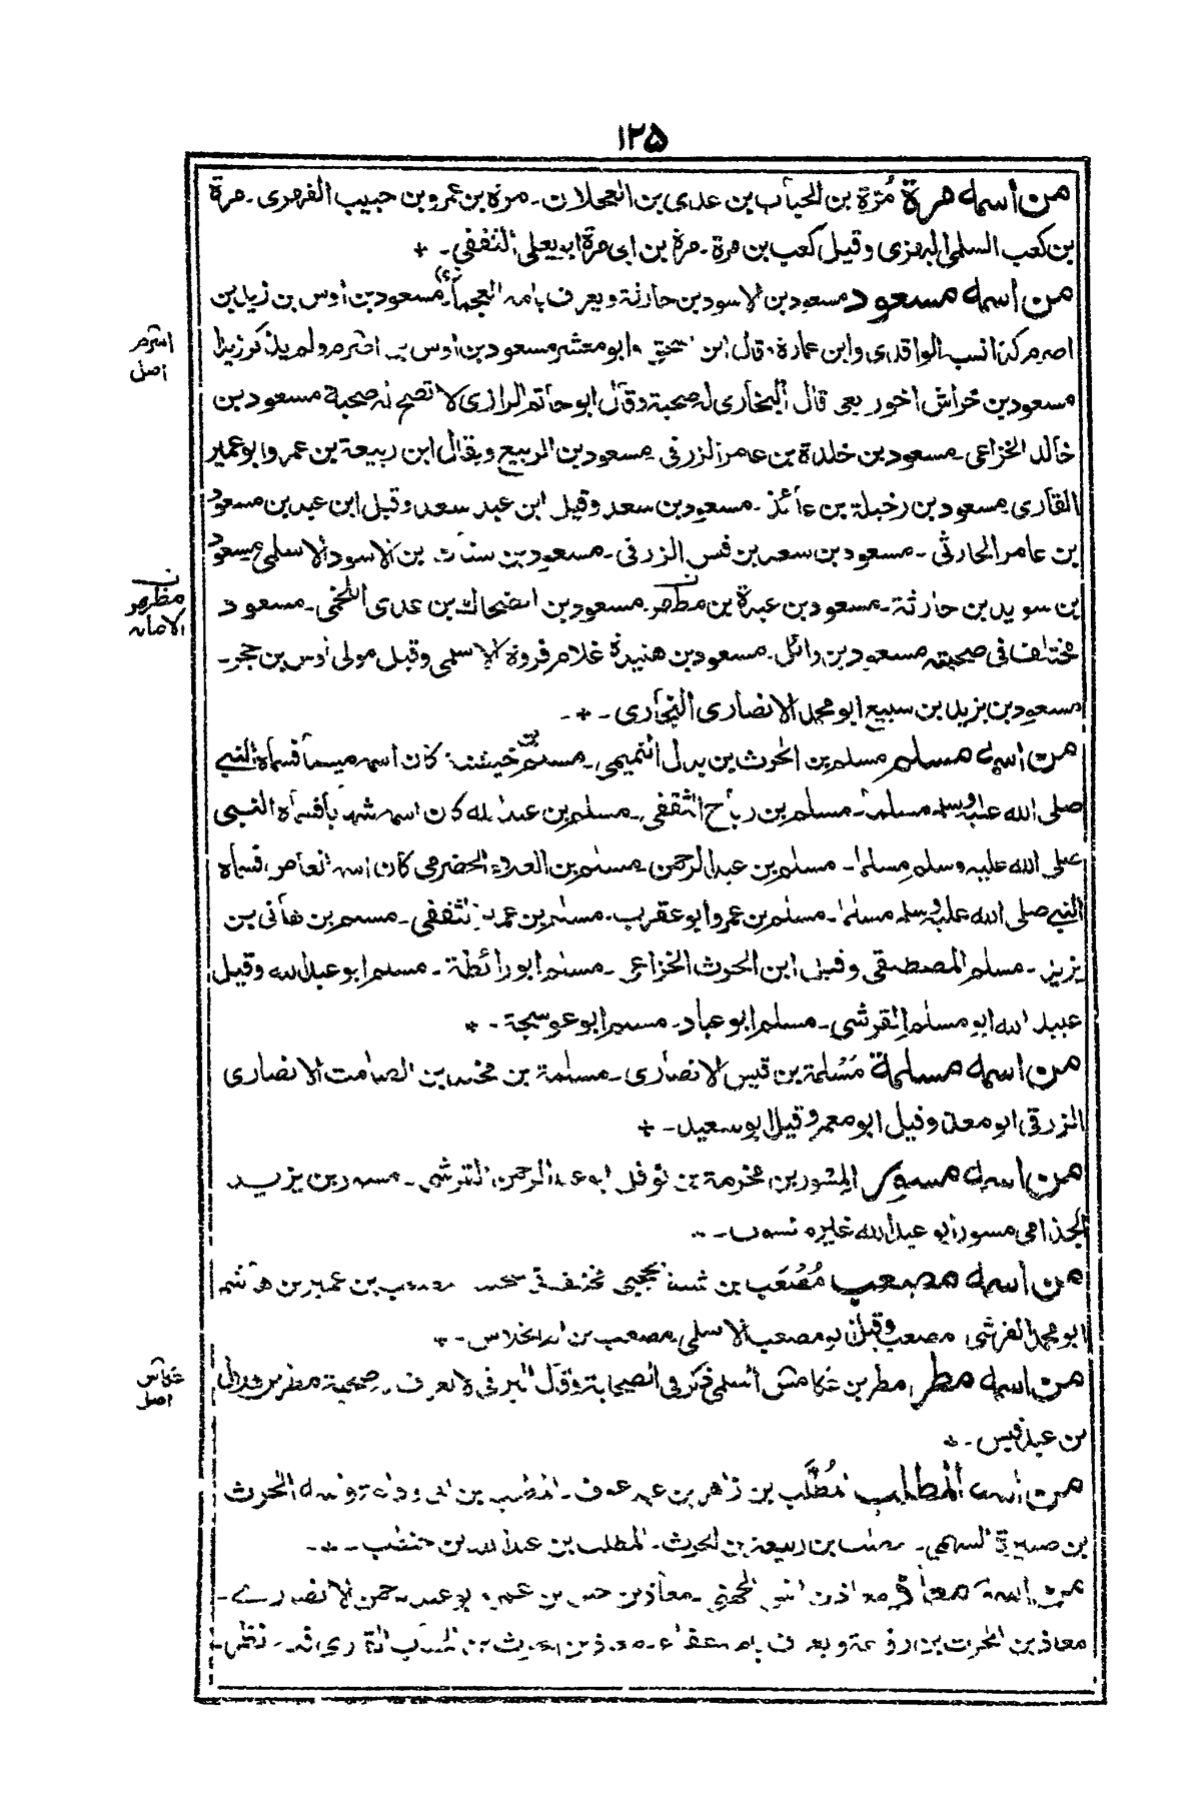 ١٢٥
من اسمه مرة مُرّة بن الحباب بن عدى بن العجلان ـ مرة بن عمرو بن حبيب الفهرى ـ مرة
بن كعب السلمى البهزى وقيل كعب بن مرة ـ مرة بن ابى مرة ابو يعلى الثقفى ـ
من اسمه مسعود مسعود بن الاسود بن حارثة ويعرف بامه العجماء ـ مسعود بن اوس بن زيد بن
اصرم كذا نسبه الواقدى وابن عمارة وقال ابن اسحق وابو معشر مسعود بن اوس بن اصرم ولم يذكر زيدا
اصرم
اصل
مسعود بن خراش اخو ربعى قال البخارى له صحبة وقال ابو حاتم الرازى لا تصح له صحبة مسعود بن
خالد الخزاعى ـ مسعود بن خلدة بن عامر الزرقى مسعود بن الربيع ويقال ابن ربيعة بن عمرو ابو عمير
القارى مسعود بن رخيلة بن عائذ ـ مسعود بن سعد وقيل ابن عبد سعد وقيل ابن عبد بن مسعود
بن عامر الحارثى ـ مسعود بن سعد بن قيس الزرقى ـ مسعود بن سنان بن الاسود الاسلمى مسعود
بن سويد بن حارثة ـ مسعود بن عبدة بن مظهر ـ مسعود بن الضحاك بن عدى اللخمى ـ مسعود
ن
مظهر
الاصابه
مختلف فى صحبته مسعود بن وائل ـ مسعود بن هنيدة غلام فروة الاسلمى وقيل مولى اوس بن حجر ـ
مسعود بن يزيد بن سبيع ابو محمد الانصارى النجارى ـ
من اسمه مسلم مسلم بن الحرث بن بدل التميمى ـ مسلم بن خيشنة كان اسمه ميسما فسماه النبى
صلى الله عليه وسلم مسلما ـ مسلم بن رباح الثقفى ـ مسلم بن عبد الله كان اسمه شهابا فسماه النبى
صلى الله عليه وسلم مسلما ـ مسلم بن عبد الرحمن ـ مسلم بن العلاء الحضرمى كان اسمه العاص فسماه
النبى صلى الله عليه وسلم مسلما ـ مسلم بن عمرو ابو عقرب ـ مسلم بن عمير الثقفى ـ مسلم بن هانى بن
يزيد ـ مسلم المصطلقى وقيل ابن الحرث الخزاعى ـ مسلم ابو رائطة ـ مسلم ابو عبد الله وقيل
عبيد الله ابو مسلم القرشى ـ مسلم ابو عباد ـ مسلم ابو عوسجة ـ
من اسمه مسلمة مَسْلمة بن قيس الانصارى ـ مسلمة بن مخلد بن الصامت الانصارى
الزرقى ابو معن وقيل ابو معمر وقيل ابو سعيد ـ
من اسمه مسور المسور بن مخرمة بن نوفل ابو عبد الرحمن القرشى ـ مسور بن يزيد
الجذامى مسور ابو عبد الله غير منسوب ـ
من اسمه مصعب مُصْعَب بن شيبة الحجبى مختلف فى صحبته مصعب بن عمير بن هاشم
ابو محمد القرشى مصعب وقيل ابو مصعب الاسلمى مصعب بن ام الجلاس ـ
من اسمه مطر مطر بن عكامس السلمى ذكر فى الصحابة وقال البرقى لا تعرف له صحبة مطر بن هلال
عكاس
اصل
بن عبد قيس ـ
من اسمه المطلب مُطَّلب بن ازهر بن عبد عوف ـ المطلب بن ابى وداعة واسمه الحرث
بن صبيرة السهمى ـ مطلب بن ربيعة بن الحرث ـ المطلب بن عبد الله بن حنطب ـ
من اسمه معاذ معاذ بن انس الجهنى ـ معاذ بن جبل بن عمرو ابو عبد الرحمن الانصارى ـ
معاذ بن الحرث بن رفاعة ويعرف بامه عفراء ـ معاذ بن الحرث بن الحباب القارى